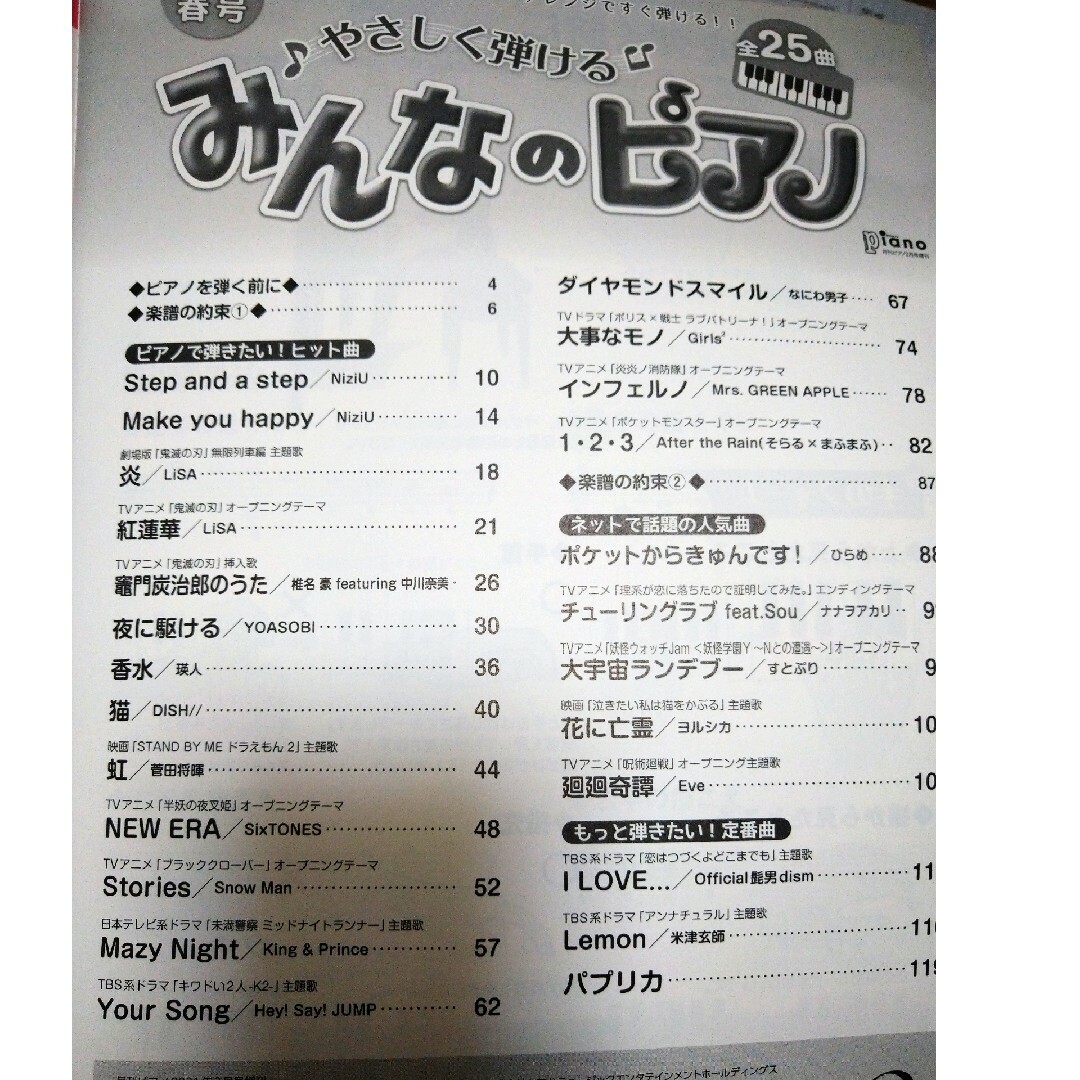 春号
ですぐ弾ける！！
♪やさしく弾ける♫
全25曲
みんなのピアノ
Piano
◆ピアノを弾く前に◆ 4
◆楽譜の約束①◆ 6
ピアノで弾きたい！ヒット曲
Step and a step／NiziU 10
Make you happy／NiziU 14
劇場版「鬼滅の刃」無限列車編 主題歌
炎／LiSA 18
TVアニメ「鬼滅の刃」オープニングテーマ
紅蓮華／LiSA 21
TVアニメ「鬼滅の刃」挿入歌
竈門炭治郎のうた／椎名 豪 featuring 中川奈美 26
夜に駆ける／YOASOBI 30
香水／瑛人 36
猫／DISH// 40
映画「STAND BY ME ドラえもん 2」主題歌
虹／菅田将暉 44
TVアニメ「半妖の夜叉姫」オープニングテーマ
NEW ERA／SixTONES 48
TVアニメ「ブラッククローバー」オープニングテーマ
Stories／Snow Man 52
日本テレビ系ドラマ「未満警察 ミッドナイトランナー」主題歌
Mazy Night／King & Prince 57
TBS系ドラマ「キワドい2人-K2-」主題歌
Your Song／Hey! Say! JUMP 62
ダイヤモンドスマイル／なにわ男子 67
TVドラマ「ポリス×戦士 ラブパトリーナ！」オープニングテーマ
大事なモノ／Girls² 74
TVアニメ「炎炎ノ消防隊」オープニングテーマ
インフェルノ／Mrs. GREEN APPLE 78
TVアニメ「ポケットモンスター」オープニングテーマ
1・2・3／After the Rain(そらる×まふまふ) 82
◆楽譜の約束②◆ 87
ネットで話題の人気曲
ポケットからきゅんです！／ひらめ 88
TVアニメ「理系が恋に落ちたので証明してみた。」エンディングテーマ
チューリングラブ feat.Sou／ナナヲアカリ 9
TVアニメ「妖怪ウォッチJam ＜妖怪学園Y ～Nとの遭遇～＞」オープニングテーマ
大宇宙ランデブー／すとぷり 9
映画「泣きたい私は猫をかぶる」主題歌
花に亡霊／ヨルシカ 10
TVアニメ「呪術廻戦」オープニング主題歌
廻廻奇譚／Eve 10
もっと弾きたい！定番曲
TBS系ドラマ「恋はつづくよどこまでも」主題歌
I LOVE...／Official髭男dism 11
TBS系ドラマ「アンナチュラル」主題歌
Lemon／米津玄師 116
パプリカ 119